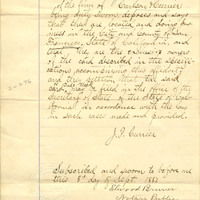 of the firm of Carlson & Currier
being duly sworn, deposes and says
that they are located and doing bus-
iness in the City and County of San
Francisco, State of California, and
that they are the exclusive owners
of the card described in the specifi-
cations accompanying this affidavit
and they desire that the said
card may be filed in the office of the
Secretary of State of the State of Cali-
fornia in accordance with the law
in such cases made and provided.
J. P. Currier
Subscribed and sworn to before me
this 8th day of Sept. 1882
Notary Public